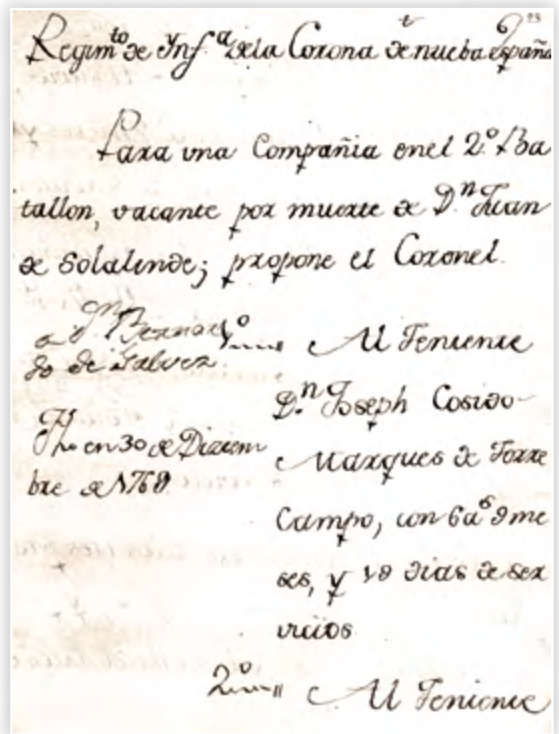 Regim.to de Ynf.a de la Corona de nueba España
Para una Compañia enel 2.º Ba
tallon, vacante por muerte de D.n Juan
de Solalinde; propone el Coronel.
a D.n Bernar
do de Galvez.
Fho en 30 de Diziem
bre de 1768.
1.º Al Teniente
D.n Joseph Cosido
Marques de Torre
Campo, con 6 a.s 9 me
ses, y 18 dias de ser
vicios
2.º Al Teniente